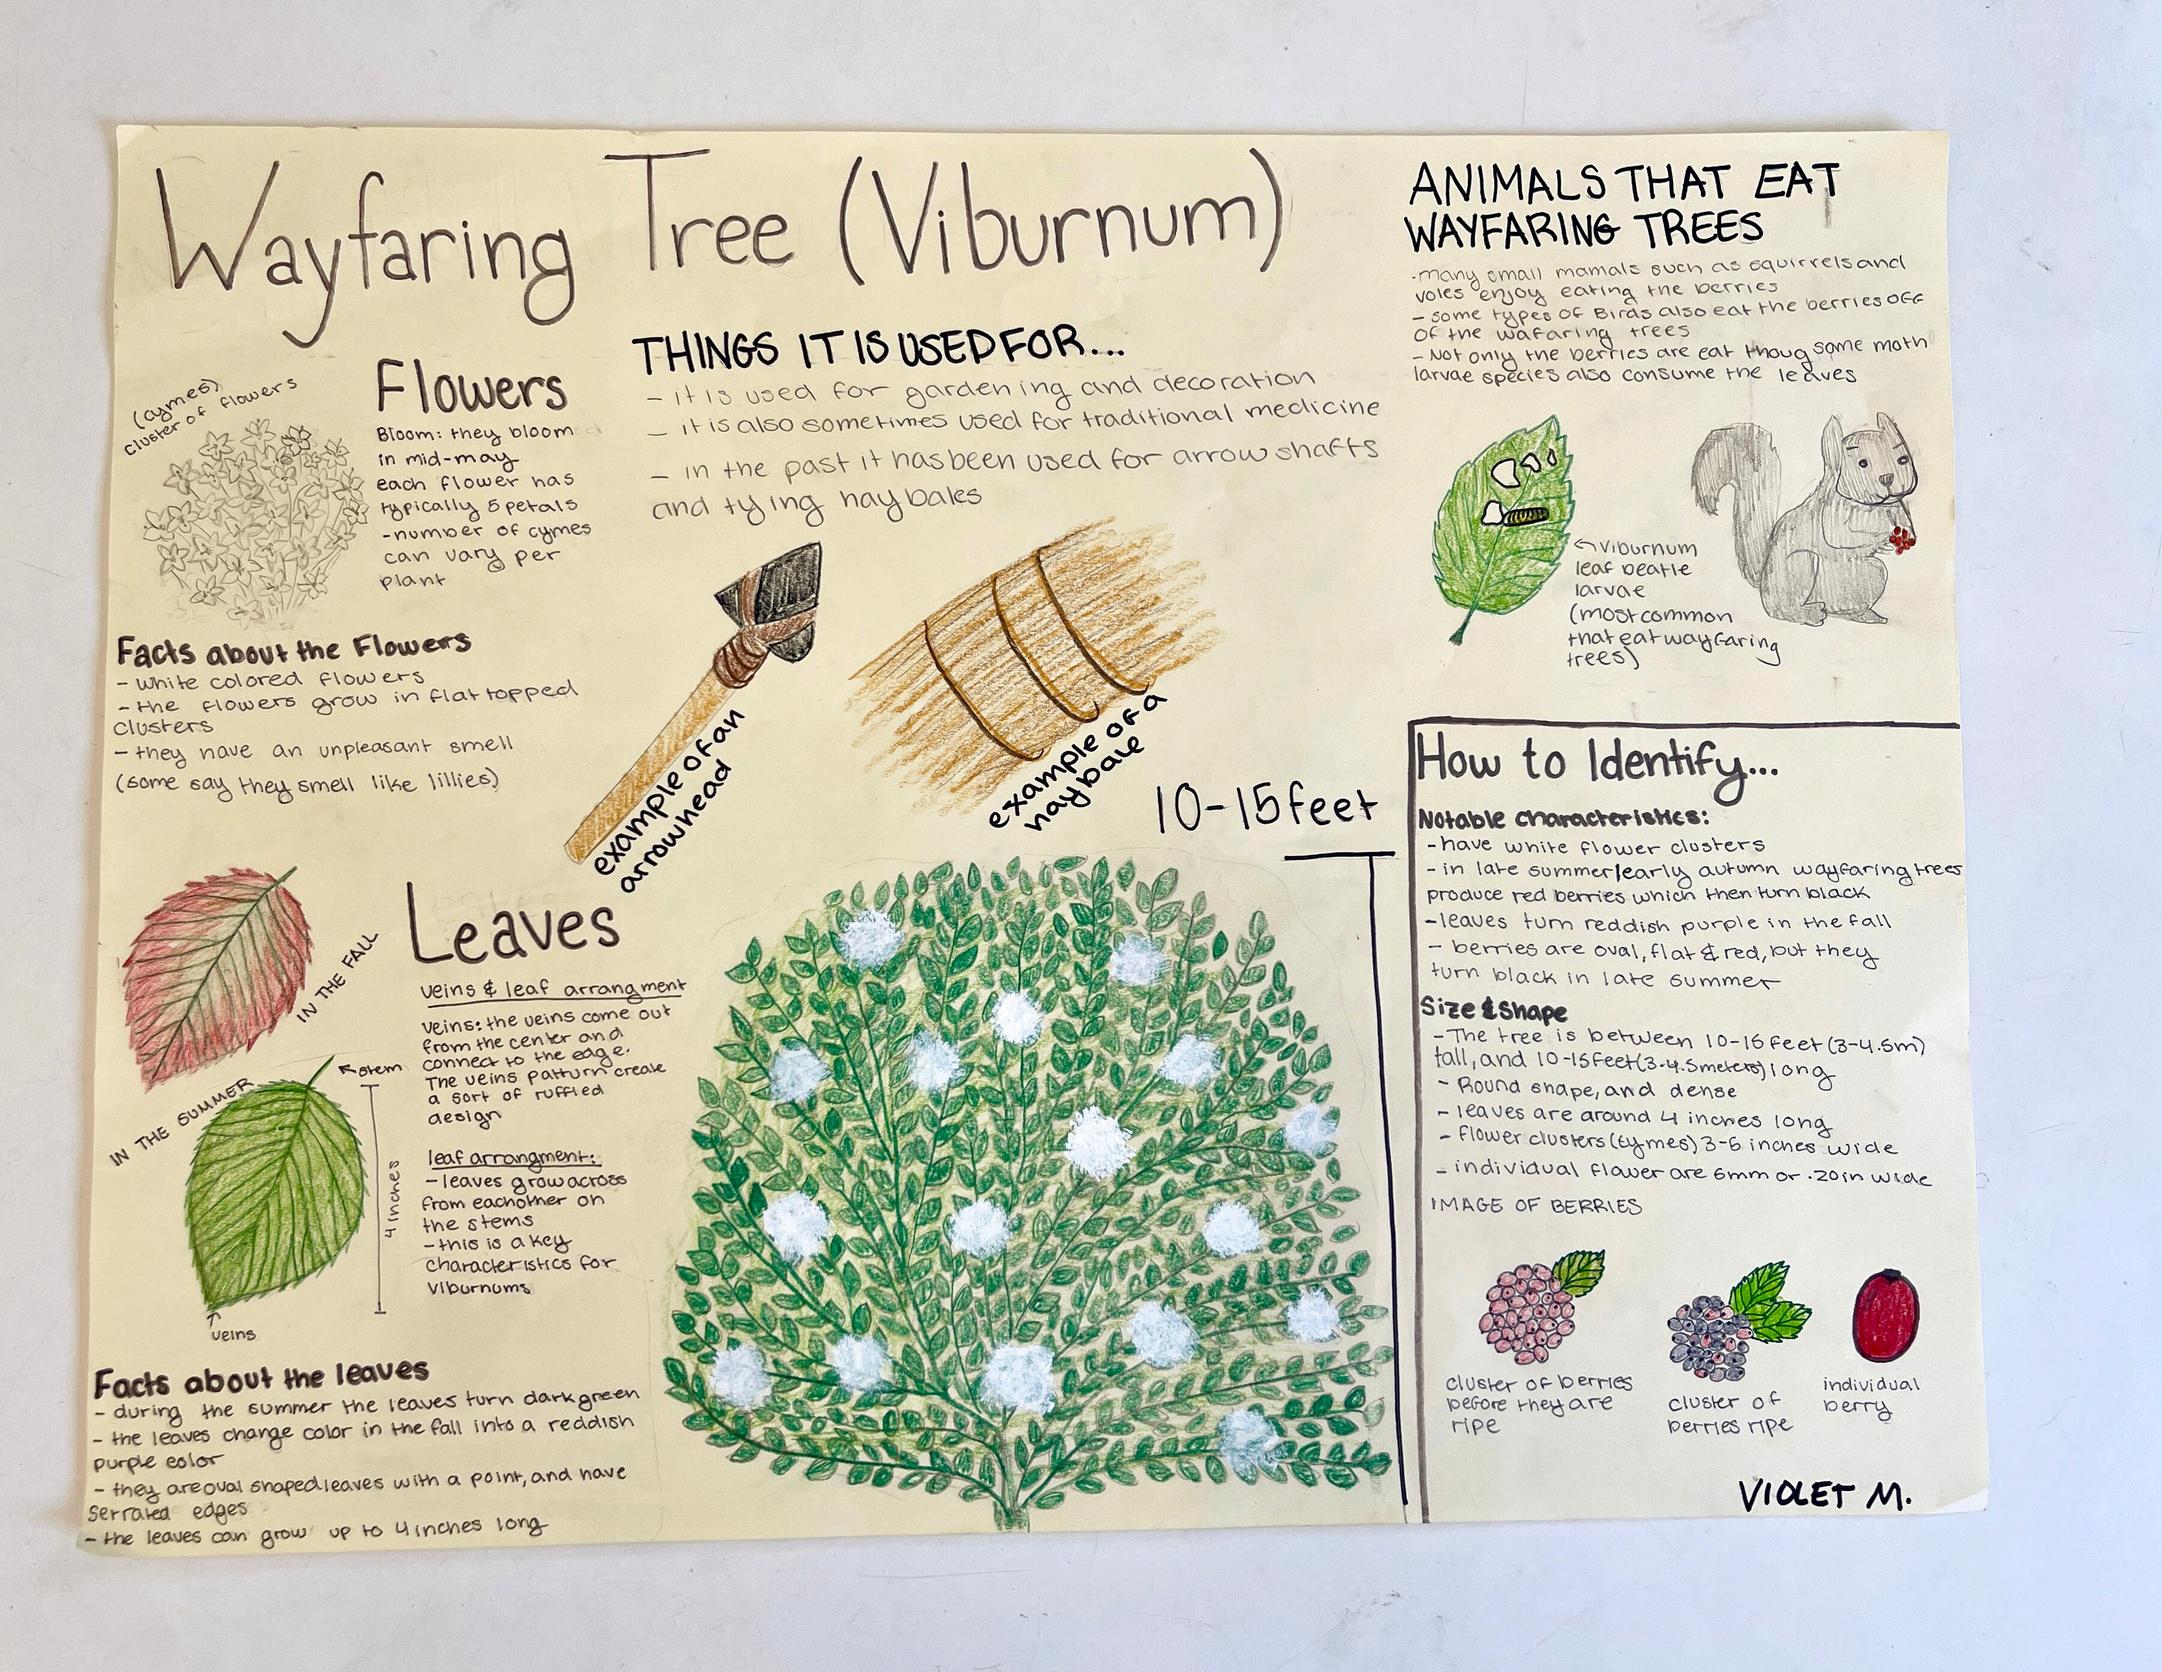 Wayfaring Tree (Viburnum)
(cymes)
cluster of flowers
Flowers
Bloom: they bloom
in mid-may
each flower has
typically 5 petals
-number of cymes
can vary per
plant
Facts about the Flowers
- white colored flowers
- the flowers grow in flat topped
clusters
- they have an unpleasant smell
(some say they smell like lillies)
THINGS IT IS USED FOR...
- it is used for gardening and decoration
- it is also sometimes used for traditional medicine
- in the past it has been used for arrow shafts
and tying hay bales
example of an
arrowhead
example of a
hay bale
10-15 feet
Leaves
IN THE FALL
IN THE SUMMER
stem
4 inches
veins
veins & leaf arrangment
veins: the veins come out
from the center and
connect to the edge.
The veins patturn create
a sort of ruffled
design
leaf arrangment:
- leaves grow across
from eachother on
the stems
- this is a key
characteristics for
viburnums
Facts about the leaves
- during the summer the leaves turn dark green
- the leaves change color in the fall into a reddish
purple color
- they are oval shaped leaves with a point, and have
serrated edges
- the leaves can grow up to 4 inches long
ANIMALS THAT EAT
WAYFARING TREES
-many small mamals such as squirrels and
voles enjoy eating the berries
- some types of Birds also eat the berries off
of the wafaring trees
- Not only the berries are eat thoug some moth
larvae species also consume the leaves
viburnum
leaf beatle
larvae
(most common
that eat wayfaring
trees)
How to Identify...
Notable characteristics:
- have white flower clusters
- in late summer/early autumn wayfaring trees
produce red berries which then turn black
-leaves turn reddish purple in the fall
- berries are oval, flat & red, but they
turn black in late summer
Size & Shape
- The tree is between 10-15 feet (3-4.5m)
tall, and 10-15 feet (3-4.5meters) long
- Round shape, and dense
- leaves are around 4 inches long
- flower clusters (cymes) 3-5 inches wide
- individual flower are 6mm or .20 in wide
IMAGE OF BERRIES
cluster of berries
before they are
ripe
cluster of
berries ripe
individual
berry
VIOLET M.